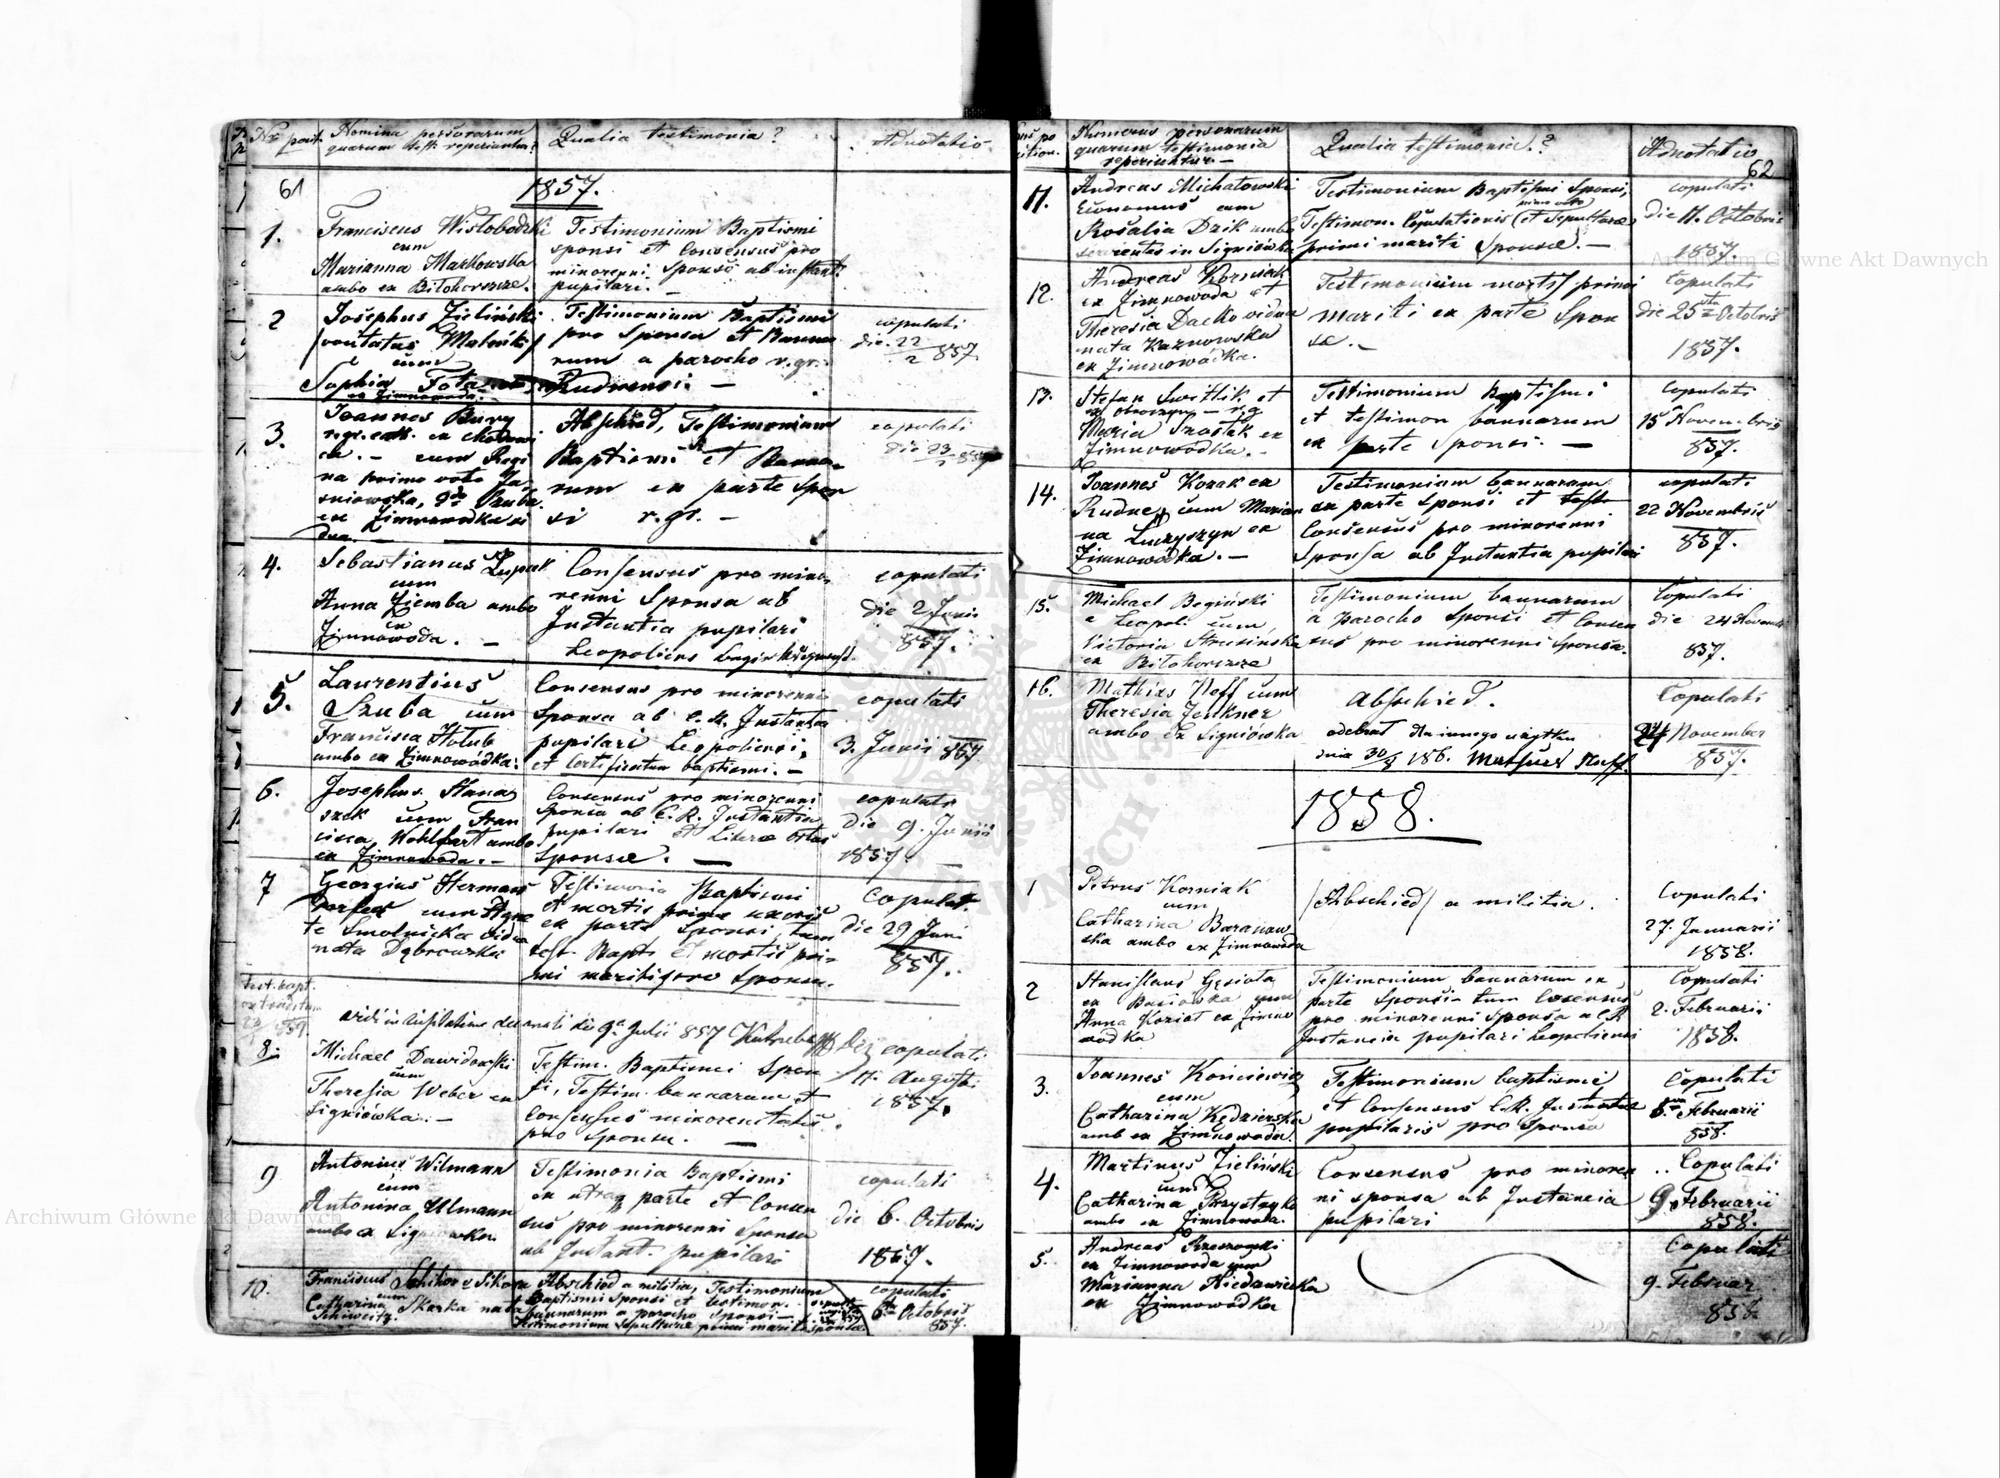 Nr posit.
Nomina personarum
quarum test: reperiuntur?
Qualia testimonia?
Adnotatio
61
1857.
1.
Franciscus Wistobodzki
cum
Marianna Markowska
ambo ex Bilohorszcze.
Testimonium Baptismi
sponsi et Consensus pro
minorenni Sponso ab instant:
pupilari. —
2
Josephus Zieliński
cum
Sophia
ex Zimnowoda.
Testimonium Baptismi
pro Sponsa et Banno
rum a parocho r. gr.
Rudnensi —
copulati
die 22/2 857.
3.
Joannes Bury
cum Regi
na primo voto Ja
sniowska, 2do Szuba
ex Zimnowodka vi
dua —
Abschied, Testimonium
Baptismi et Banno
rum ex parte Spon
si r. gr. —
copulati
die 23
4.
Sebastianus Lupak
cum
Anna Ziemba ambo
ex
Zimnowoda. —
Consensus pro mino
renni Sponsa ab
Instantia pupilari
Leopoliens
copulati
die 2 Junii
857.
5.
Laurentius
Szuba cum
Francisca Holub
ambo ex Zimnowódka.
Consensus pro minorenni
Sponsa ab C. R. Instantia
pupilari Leopoliensi,
et Certificatum baptismi. —
copulati
3. Junii 857
6.
Josephus Hana
szek cum Fran
cisca Wohlfart ambo
ex Zimnowoda. —
Consensus pro minorenni
Sponsa ab C. R. Instantia
pupilari et Literae ortus
Sponsae. —
copulati
die 9. Junii
1857.
7
Georgius Hermans
cum Agne
te Smolnicka vidua
nata Dąbrowska
Testimonia Baptismi
et mortis primae uxoris
ex parte Sponsi, tum
test. Bapt. et mortis pri
mi mariti pro Sponsa.
Copulat.
die 29 Juni
857.
Test. bapt.
extraditum
859.
die 9a Julii 857
8.
Michael Dawidowski
cum
Theresia Weber ex
Signiówka. —
Testim. Baptismi Spon
si, Testim. bannorum et
Consensus minorenitatis
pro Sponsa. —
copulati
11. Augusti
1857.
9
Antonius Wilmann
cum
Antonina Ulmann
ambo ex Signiowka
Testimonia Baptismi
ex utraq parte et Consen
sus pro minorenni Sponsa
ab Instant. pupilari
copulati
die 6. Octobris
1857.
10.
Franciscus Schikor v Sikora
cum
Catharina Skarka nata
Schiweitz.
Abschied a militia, Testimonium
Baptismi Sponsi et testimon.
bannorum a parocho Sponsi —
Testimonium Sepulturae primi mariti Sponsae.
copulati
6ta Octobris
857.
Numerus personarum
quarum testimonia
reperiuntur. —
Qualia testimonia.?
Adnotatio
62
11.
Andreas Michatowski
Economus cum
Rosalia Dzik ambo
servientes in Signiówka
Testimonium Baptismi Sponsi,
Testimon. Copulationis (et Sepulturae)
primi mariti Sponsae. —
copulati
die 11. Octobris
1857.
12.
Andreas Korniak
ex Zimnowoda et
Theresia Daćko vidua
nata Kaznowska
ex Zimnowódka.
Testimonium mortis primi
mariti ex parte Spon
sae. —
Copulati
die 25ta Octobris
1857.
13.
Stefan Switlik et
ex Obroszyn — r. g
Maria Szostak ex
Zimnowódka. —
Testimonium Baptismi
et testimon bannorum
ex parte Sponsi. —
Copulati
15 Novembris
857.
14.
Joannes Kozak ex
Rudne, cum Marian
na Luczyszyn ex
Zimnowódka. —
Testimonium bannorum
ex parte Sponsi et
Consensus pro minorenni
Sponsa ab Instantia pupilari
copulati
22 Novembris
857.
15.
Michael Begiński
e Leopoli cum
Victoria
ex Bilohorszcze
Testimonium bannorum
a Parocho Sponsi et Consen
sus pro minorenni Sponsa.
Copulati
die 24 Novemb
857.
16.
Mathias Neff cum
Theresia Jenkner
ambo ex Signiówka
Abschied.
odebrał do innego użytku
dnia 30/8 186.
Copulati
24 November
857.
1858.
1
Petrus Korniak
cum
Catharina Baranow
ska ambo ex Zimnowoda
(Abschied) a militia.
Copulati
27. Januarii
1858.
2
Stanislaus Gęsiola
ex Basiowka cum
Anna Koziot ex Zimno
wodka
Testimonium bannorum ex
parte Sponsi tum Cosensus
pro minorenni Sponsa a C R
Instancia pupilari Leopoliensi
Copulati
2. Februarii
1858.
3.
Joannes Kościewicz
cum
Catharina Kędzierska
amb ex Zimnowoda.
Testimonium baptismi
et Consensus C. R. Instantiae
pupilaris pro Sponsa
Copulati
Februarii
858.
4.
Martinus Zieliński
cum
Catharina Przystayko
ambo ex Zimnowoda.
Consensus pro minoren
ni sponsa ab Instancia
pupilari
Copulati
9. Februarii
858.
5.
Andreas Rzeszowski
ex Zimnowoda cum
Marianna Niedzwiecka
ex Zimnowódka
Copulati
9. Februar
858.
Archiwum Główne Akt Dawnych
Archiwum Główne Akt Dawnych